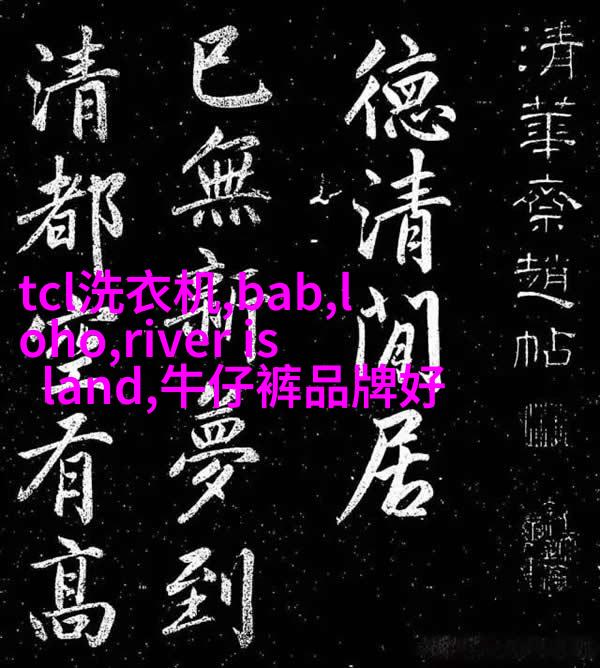 清華齋趙帖
德清閒居
已無新夢到
清都空有髙
tcl洗衣机,bab,l
oho,river is
land,牛仔裤品牌好